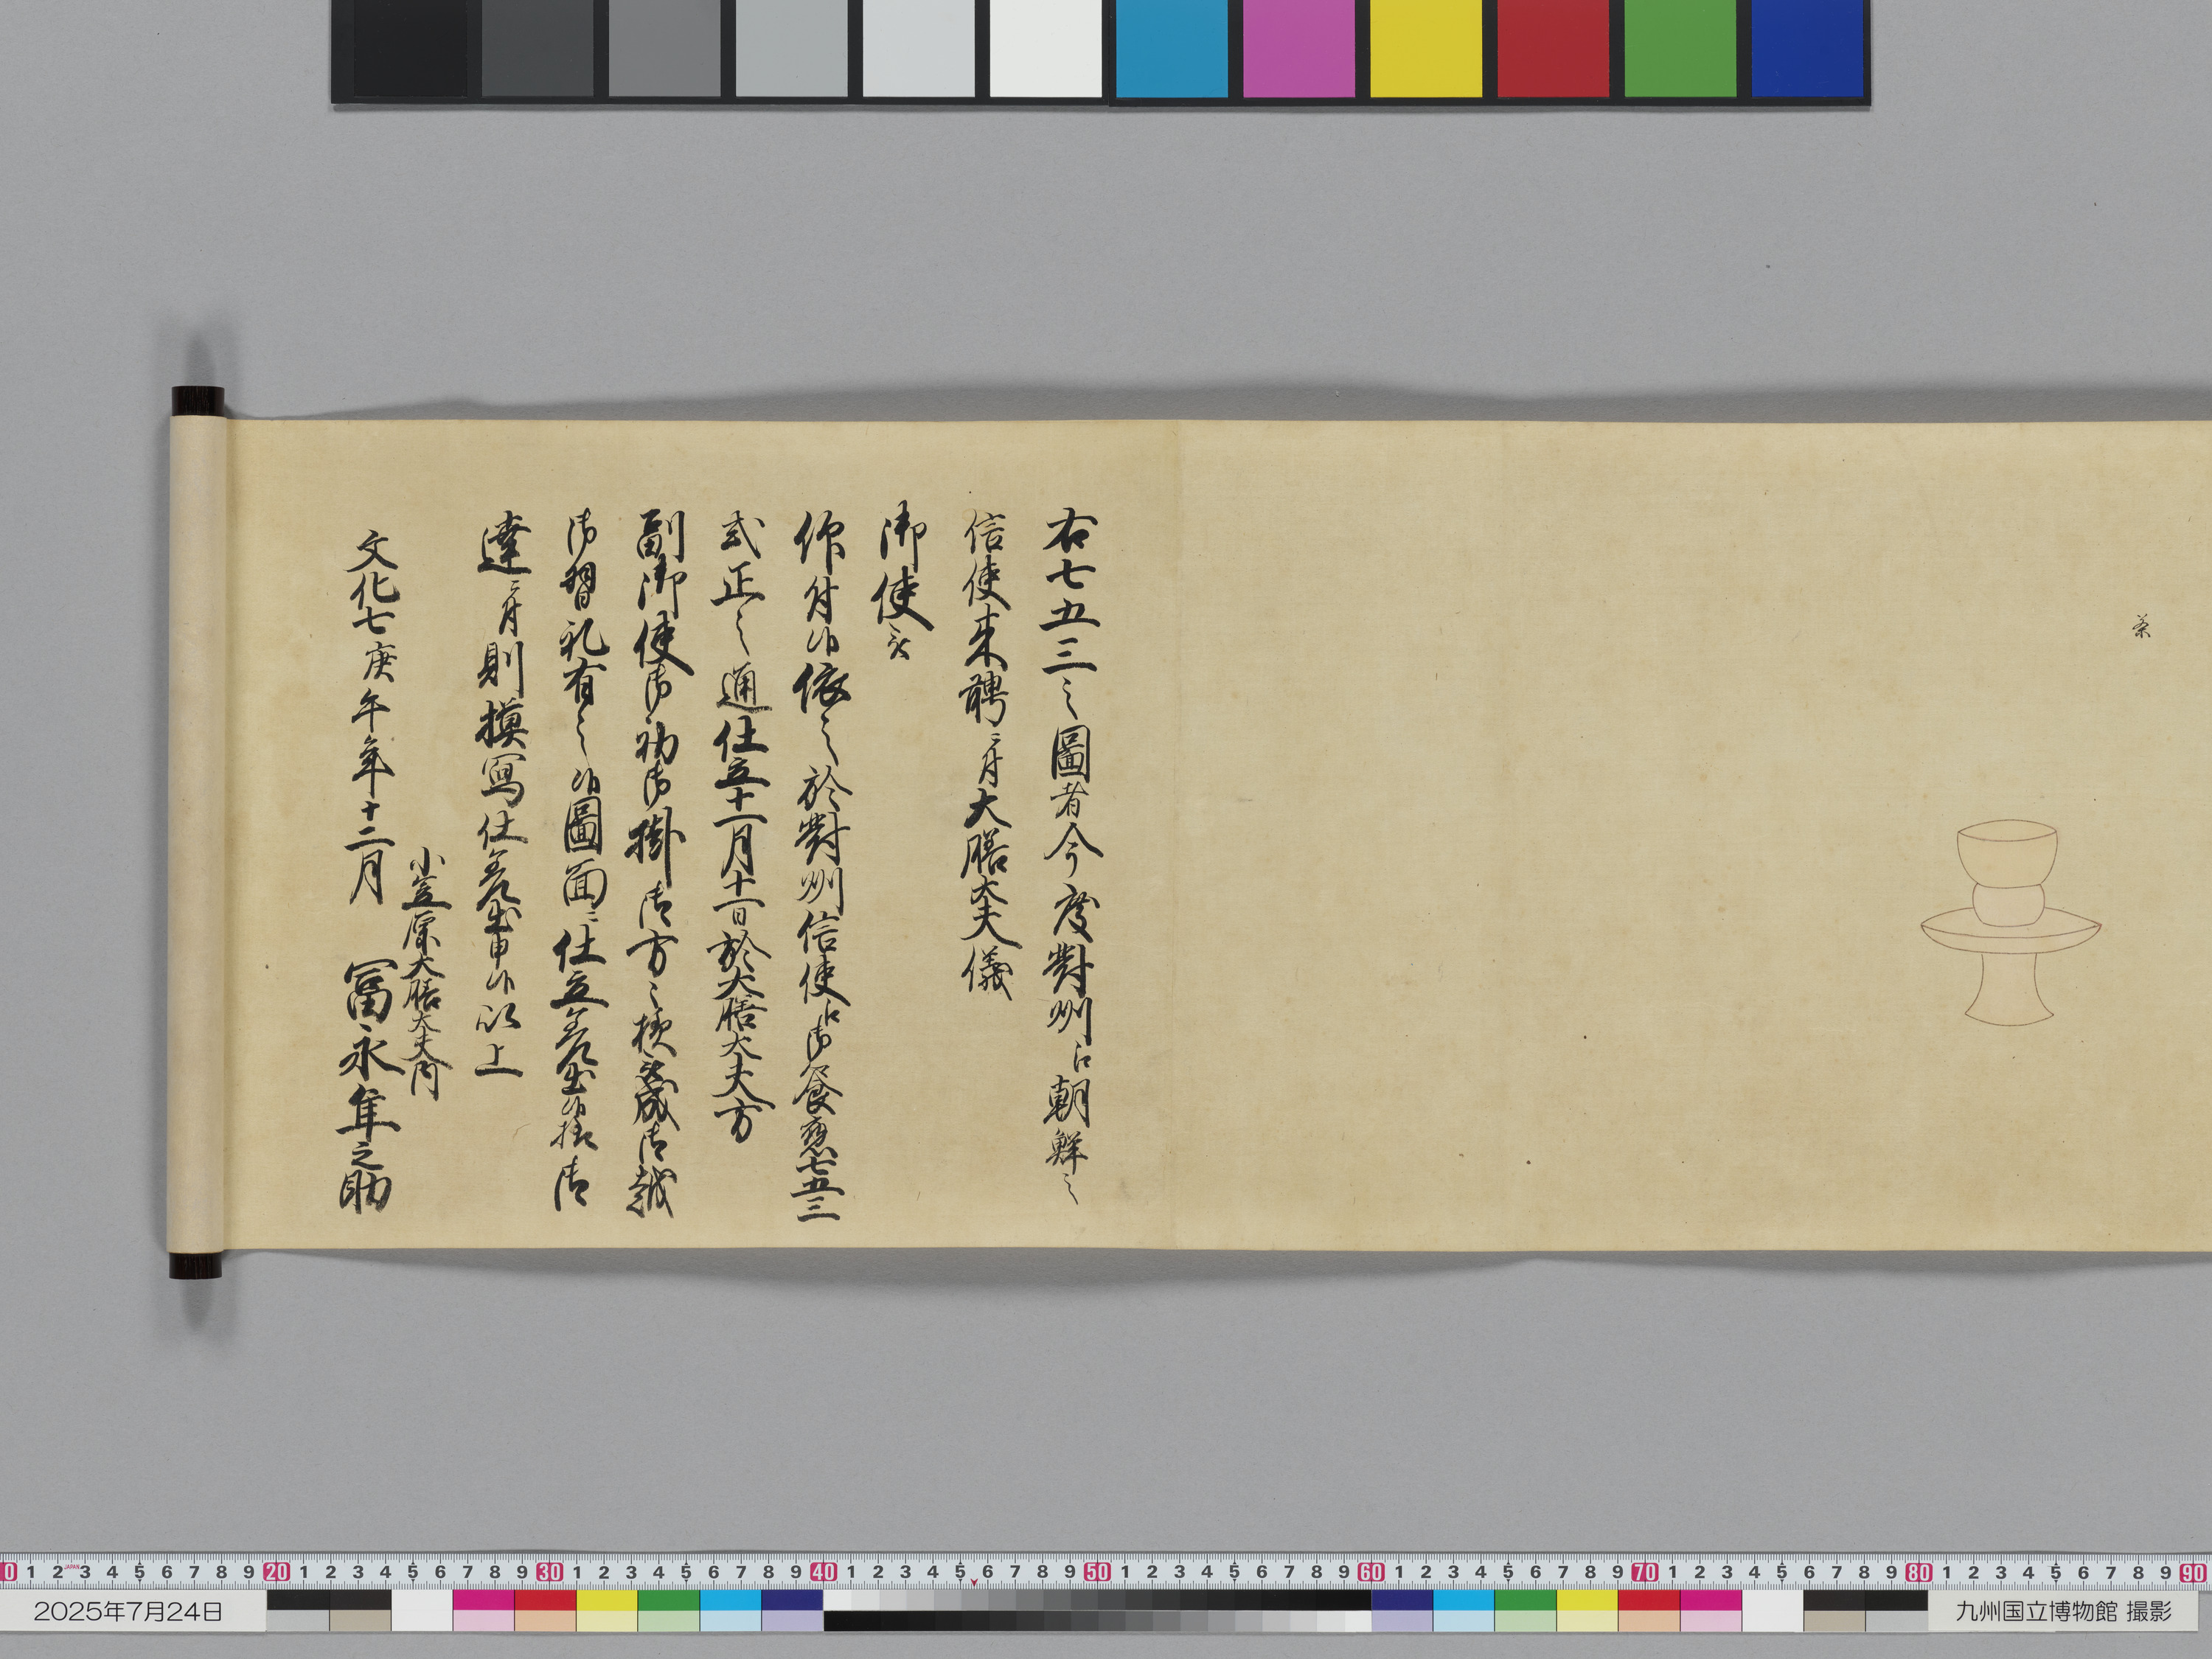 茶
右七五三之圖者今度對州江朝鮮之
信使来聘ニ付大膳大夫儀
御使被
仰付候依之於對州信使江御饗應七五三
式正之通仕立十一月十一日於大膳大夫方
副御使御初御掛御方々様被成御越
御習礼有之候圖面ニ仕立差出候様御
達ニ付則摸寫仕差出申候以上
小笠原大膳大夫内
文化七庚午年十二月 冨永隼之助
0 1 2 3 4 5 6 7 8 9 20 1 2 3 4 5 6 7 8 9 30 1 2 3 4 5 6 7 8 9 40 1 2 3 4 5 6 7 8 9 50 1 2 3 4 5 6 7 8 9 60 1 2 3 4 5 6 7 8 9 70 1 2 3 4 5 6 7 8 9 80 1 2 3 4 5 6 7 8 9 90
JAPAN
2025年7月24日
九州国立博物館 撮影